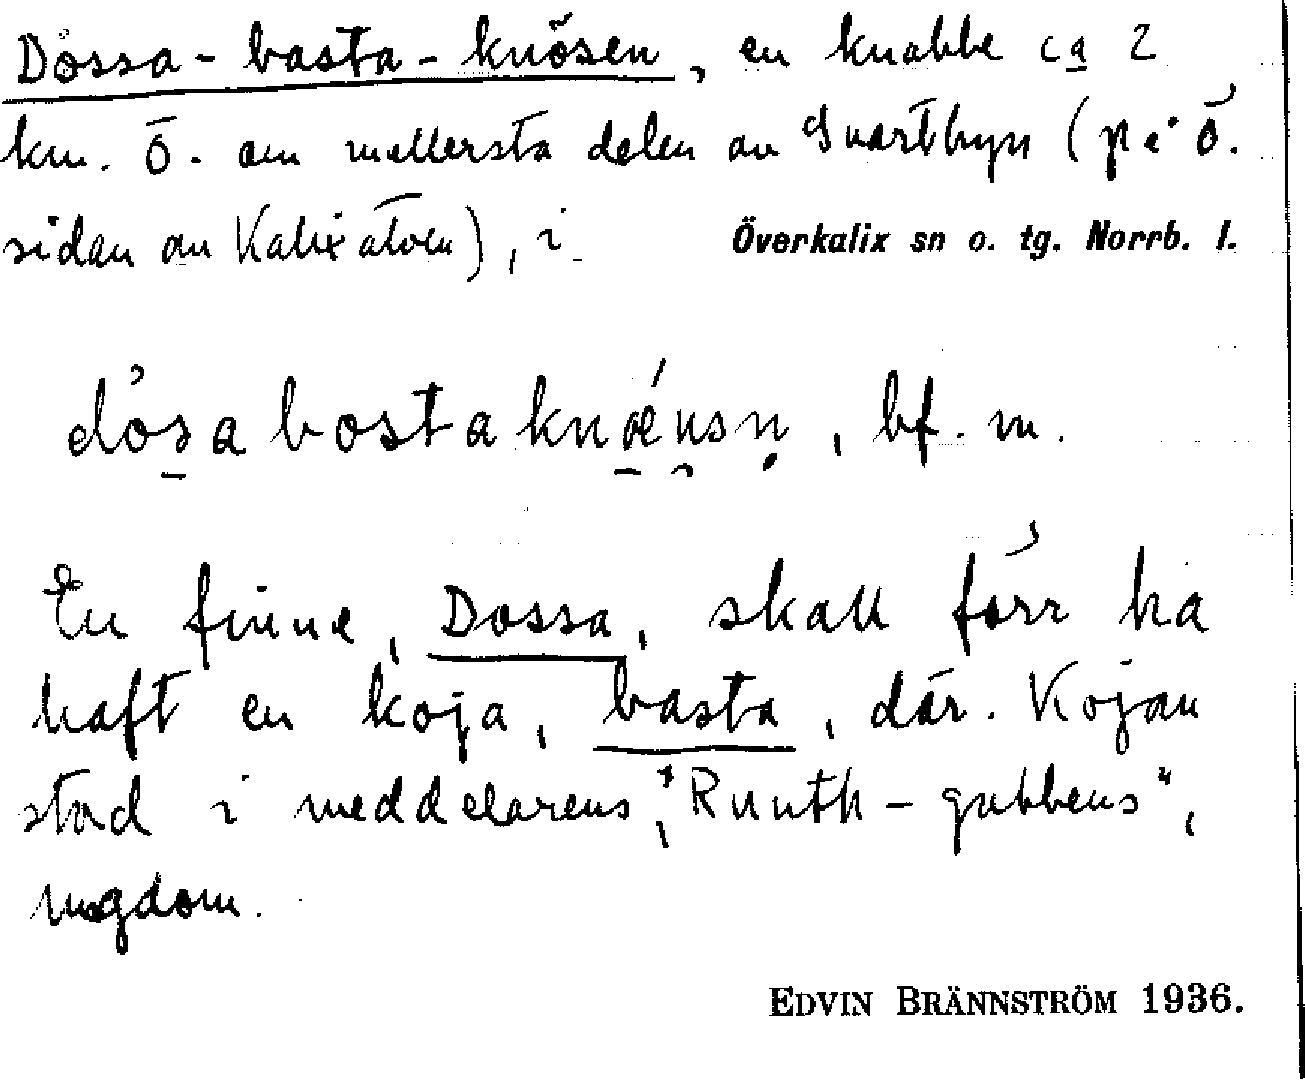 Dossa-basta-knösen, en knabbe ca 2
km. Ö. om mellersta delen av Svartbyn (på ö.
sidan av Kalix älven), i Överkalix sn o. tg. Norrb. l.
bf. m.
En finne, Dossa, skall förr ha
haft en koja, basta, där. Kojan
stod i meddelarens, "Ruuth-gubbens",
ungdom.
EDVIN BRÄNNSTRÖM 1936.